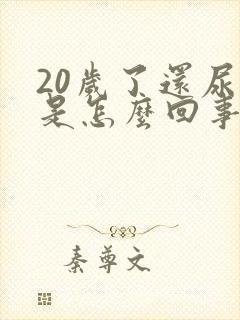 20歲了還尿
是怎麼回事
秦尊文